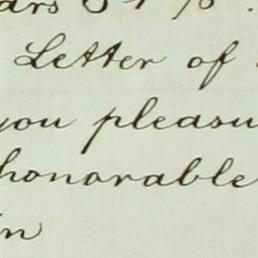 Letter of
you pleasu
honorable